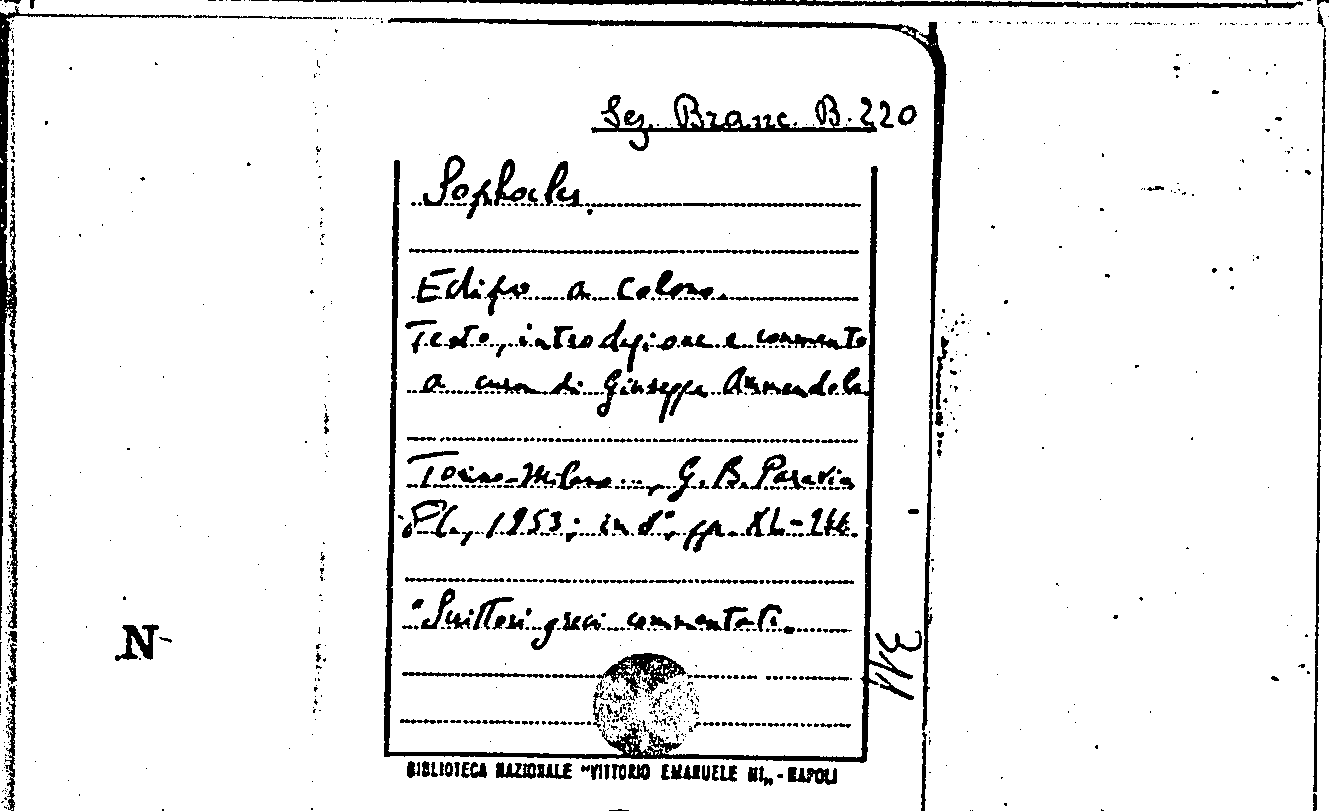 Sez. Branc. B. 220
Sophocles.
Edipo a Colono.
Testo, introduzione e commento
a cura di Giuseppe Ammendola
Torino-Milano..., G. B. Paravia
1953; in 8°, pp. XL-
"Scrittori greci commentati.
N
BIBLIOTECA NAZIONALE "VITTORIO EMANUELE III„ - NAPOLI